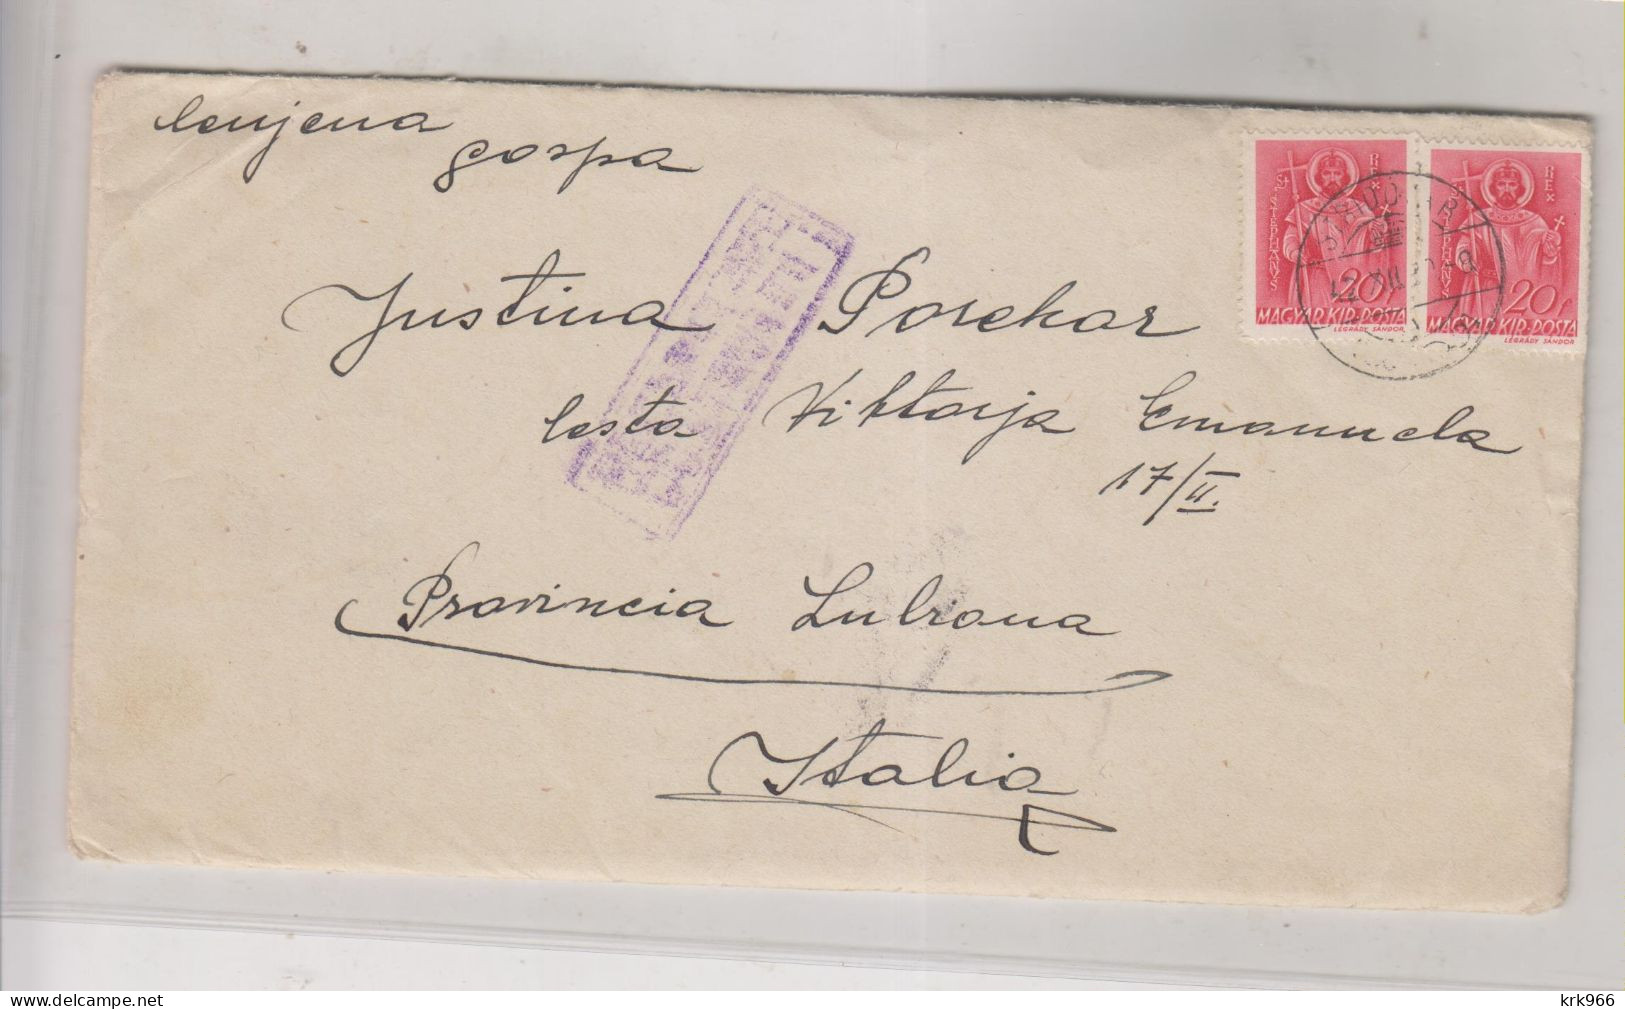 Cenjena
gospa
Justina Porekar
Cesta Viktorja Emanuela
17/II.
Provincia Lubiana
Italia
ST STEPHANUS REX
20f
MAGYAR KIR. POSTA
LÉGRÁDY SÁNDOR
ST STEPHANUS REX
20f
MAGYAR KIR. POSTA
LÉGRÁDY SÁNDOR
delcampe.net
krk966